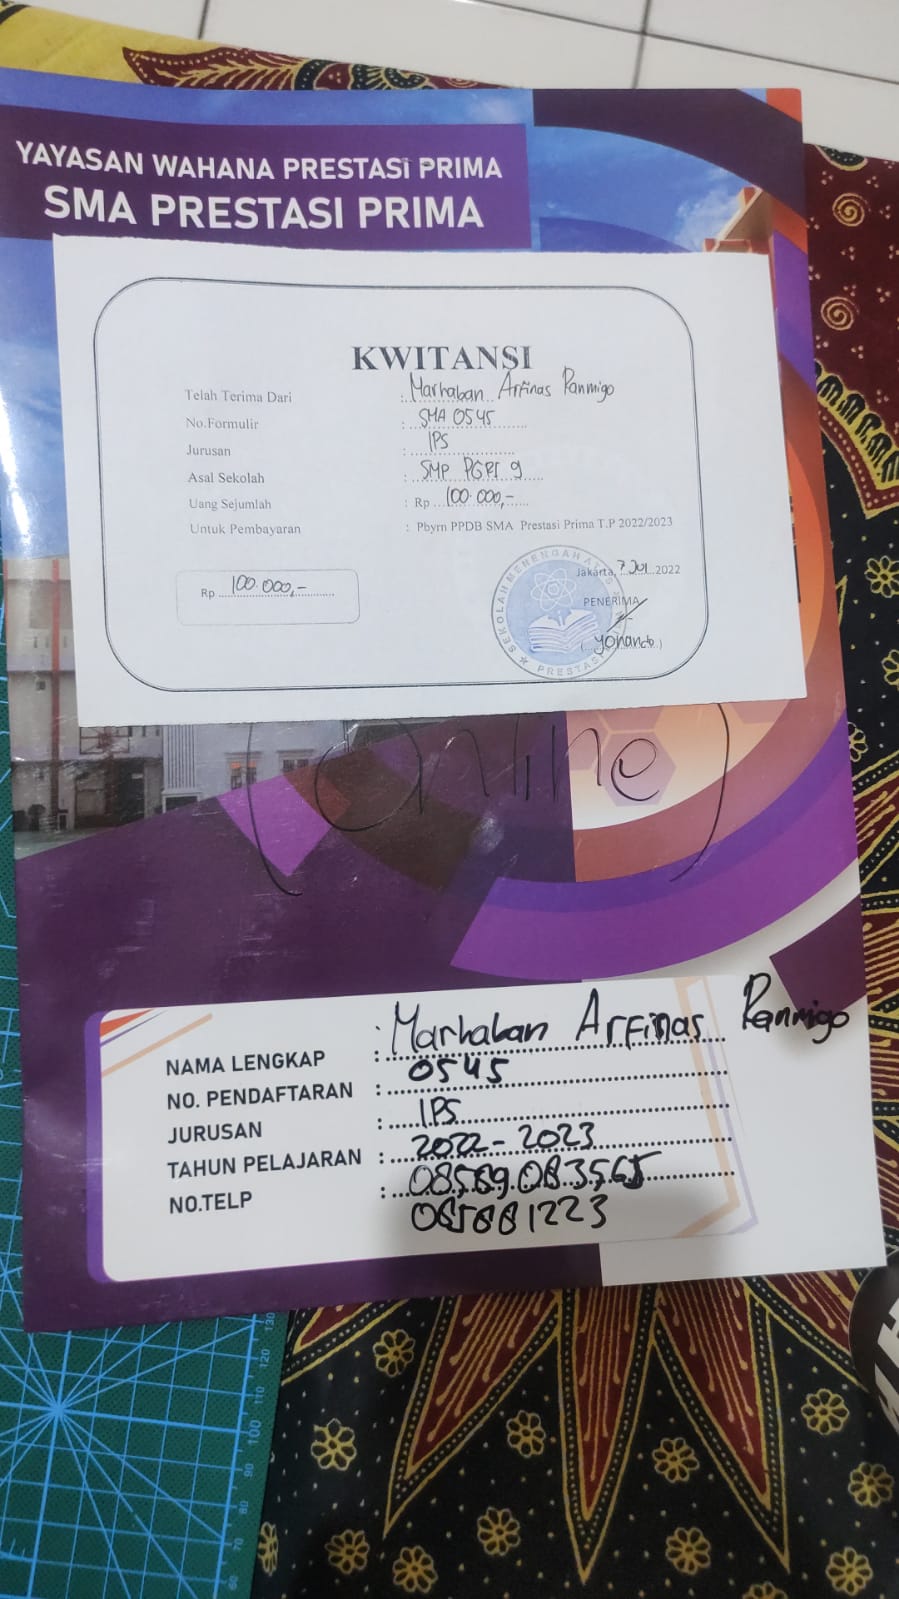 YAYASAN WAHANA PRESTASI PRIMA
SMA PRESTASI PRIMA
KWITANSI
Telah Terima Dari : Marhaban Arfinas Ranmigo
No.Formulir : SMA 0545
Jurusan : IPS
Asal Sekolah : SMP PGRI 9
Uang Sejumlah : Rp 100.000,-
Untuk Pembayaran : Pbyrn PPDB SMA Prestasi Prima T.P 2022/2023
Jakarta, 7 Jul 2022
Rp 100.000,-
PENERIMA
SEKOLAH MENENGAH ATAS
PRESTASI
(Online)
NAMA LENGKAP : Marhaban Arfinas Ranmigo
NO. PENDAFTARAN : 0545
JURUSAN : IPS
TAHUN PELAJARAN : 2022-2023
NO.TELP :